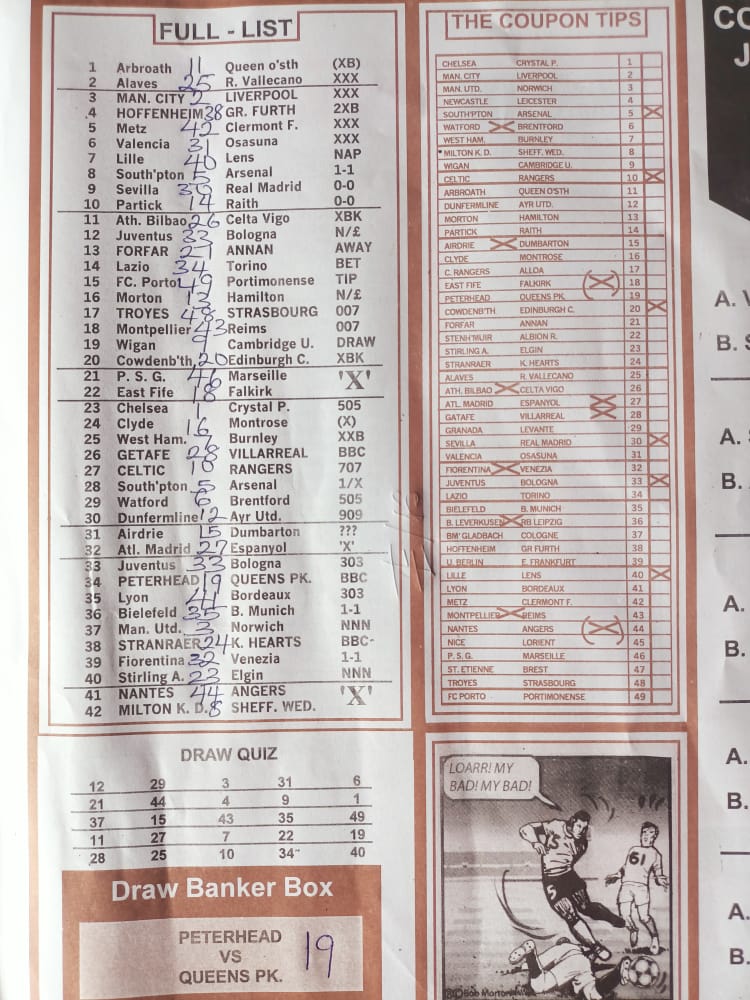 FULL - LIST
1 Arbroath 11 Queen o'sth (XB)
2 Alaves 25 R. Vallecano XXX
3 MAN. CITY 2 LIVERPOOL XXX
4 HOFFENHEIM 38 GR. FURTH 2XB
5 Metz 42 Clermont F. XXX
6 Valencia 31 Osasuna XXX
7 Lille 40 Lens NAP
8 South'pton 5 Arsenal 1-1
9 Sevilla 30 Real Madrid 0-0
10 Partick 14 Raith 0-0
11 Ath. Bilbao 26 Celta Vigo XBK
12 Juventus 33 Bologna N/£
13 FORFAR 21 ANNAN AWAY
14 Lazio 34 Torino BET
15 FC. Porto 49 Portimonense TIP
16 Morton 13 Hamilton N/£
17 TROYES 48 STRASBOURG 007
18 Montpellier 43 Reims 007
19 Wigan 9 Cambridge U. DRAW
20 Cowdenb'th, 20 Edinburgh C. XBK
21 P. S. G. 46 Marseille 'X'
22 East Fife 18 Falkirk
23 Chelsea 1 Crystal P. 505
24 Clyde 16 Montrose (X)
25 West Ham. 7 Burnley XXB
26 GETAFE 28 VILLARREAL BBC
27 CELTIC 10 RANGERS 707
28 South'pton 5 Arsenal 1/X
29 Watford 6 Brentford 505
30 Dunfermline 12 Ayr Utd. 909
31 Airdrie 15 Dumbarton ???
32 Atl. Madrid 27 Espanyol 'X'
33 Juventus 33 Bologna 303
34 PETERHEAD 19 QUEENS PK. BBC
35 Lyon 41 Bordeaux 303
36 Bielefeld 35 B. Munich 1-1
37 Man. Utd. 3 Norwich NNN
38 STRANRAER 24 K. HEARTS BBC-
39 Fiorentina 32 Venezia 1-1
40 Stirling A. 23 Elgin NNN
41 NANTES 44 ANGERS 'X'
42 MILTON K. D. 8 SHEFF. WED.
THE COUPON TIPS
CHELSEA CRYSTAL P. 1
MAN. CITY LIVERPOOL 2
MAN. UTD. NORWICH 3
NEWCASTLE LEICESTER 4
SOUTH'PTON ARSENAL 5
WATFORD BRENTFORD 6
WEST HAM. BURNLEY 7
MILTON K. D. SHEFF. WED. 8
WIGAN CAMBRIDGE U. 9
CELTIC RANGERS 10
ARBROATH QUEEN O'STH 11
DUNFERMLINE AYR UTD. 12
MORTON HAMILTON 13
PARTICK RAITH 14
AIRDRIE DUMBARTON 15
CLYDE MONTROSE 16
C. RANGERS ALLOA 17
EAST FIFE FALKIRK 18
PETERHEAD QUEENS PK. 19
COWDENB'TH EDINBURGH C. 20
FORFAR ANNAN 21
STENH'MUIR ALBION R. 22
STIRLING A. ELGIN 23
STRANRAER K. HEARTS 24
ALAVES R. VALLECANO 25
ATH. BILBAO CELTA VIGO 26
ATL. MADRID ESPANYOL 27
GATAFE VILLARREAL 28
GRANADA LEVANTE 29
SEVILLA REAL MADRID 30
VALENCIA OSASUNA 31
FIORENTINA VENEZIA 32
JUVENTUS BOLOGNA 33
LAZIO TORINO 34
BIELEFELD B. MUNICH 35
B. LEVERKUSEN RB LEIPZIG 36
BM' GLADBACH COLOGNE 37
HOFFENHEIM GR FURTH 38
U. BERLIN E. FRANKFURT 39
LILLE LENS 40
LYON BORDEAUX 41
METZ CLERMONT F. 42
MONTPELLIER REIMS 43
NANTES ANGERS 44
NICE LORIENT 45
P. S. G MARSEILLE 46
ST. ETIENNE BREST 47
TROYES STRASBOURG 48
FC PORTO PORTIMONENSE 49
DRAW QUIZ
12 29 3 31 6
21 44 4 9 1
37 15 43 35 49
11 27 7 22 19
28 25 10 34 40
Draw Banker Box
PETERHEAD
VS
QUEENS PK.
19
LOARR! MY
BAD! MY BAD!
15
5
61
CO
J
A. V
B. S
A.
B.
A.
B.
A.
B.
A.
B.